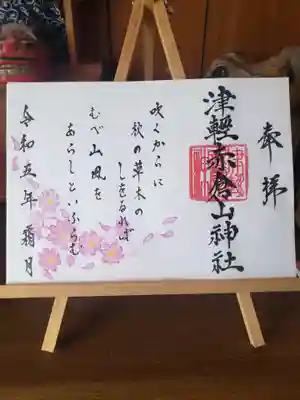 奉拝
津軽赤倉山神社
吹くからに
秋の草木の
しをるれば
むべ山風を
あらしといふらむ
令和五年 霜月